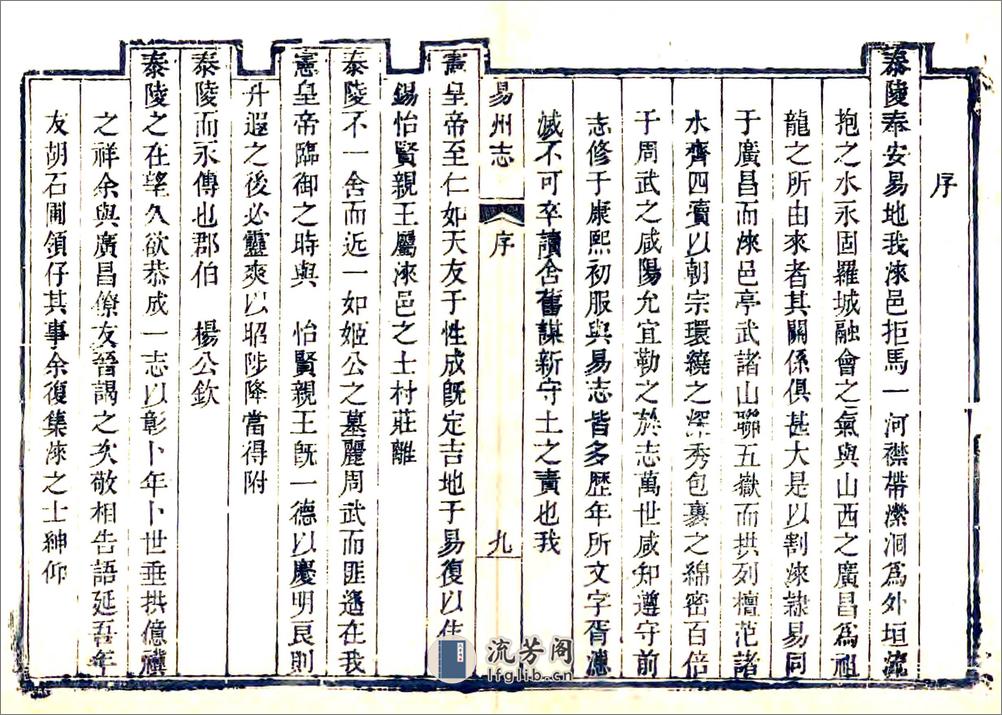 序
泰陵奉安易地我淶邑拒馬一河襟帶瀠洄爲外垣流
抱之水永固羅城融會之氣與山西之廣昌爲祖
龍之所由來者其關係俱甚大是以割淶隸易同
于廣昌而淶邑亭武諸山聯五嶽而拱列檀范諸
水齊四瀆以朝宗環繞之深秀包裹之綿密百倍
于周武之咸陽允宜勒之於志萬世咸知遵守前
志修于康熙初服與易志皆多歷年所文字胥漶
滅不可卒讀舍舊謀新守土之責也我
易州志 序 九
憲皇帝至仁如天友于性成既定吉地于易復以
錫怡賢親王屬淶邑之土村莊離
泰陵不一舍而近一如姬公之墓麗周武而匪遙在我
憲皇帝臨御之時與 怡賢親王既一德以慶明良則
升遐之後必靈爽以昭陟降當得附
泰陵而永傳也郡伯 楊公欽
泰陵之在望久欲恭成一志以彰卜年卜世垂拱億禩
之祥余與廣昌僚友晉謁之次敬相告語延吾年
友胡石圃領仔其事余復集淶之士紳仰
流芳阁
lfglib.cn